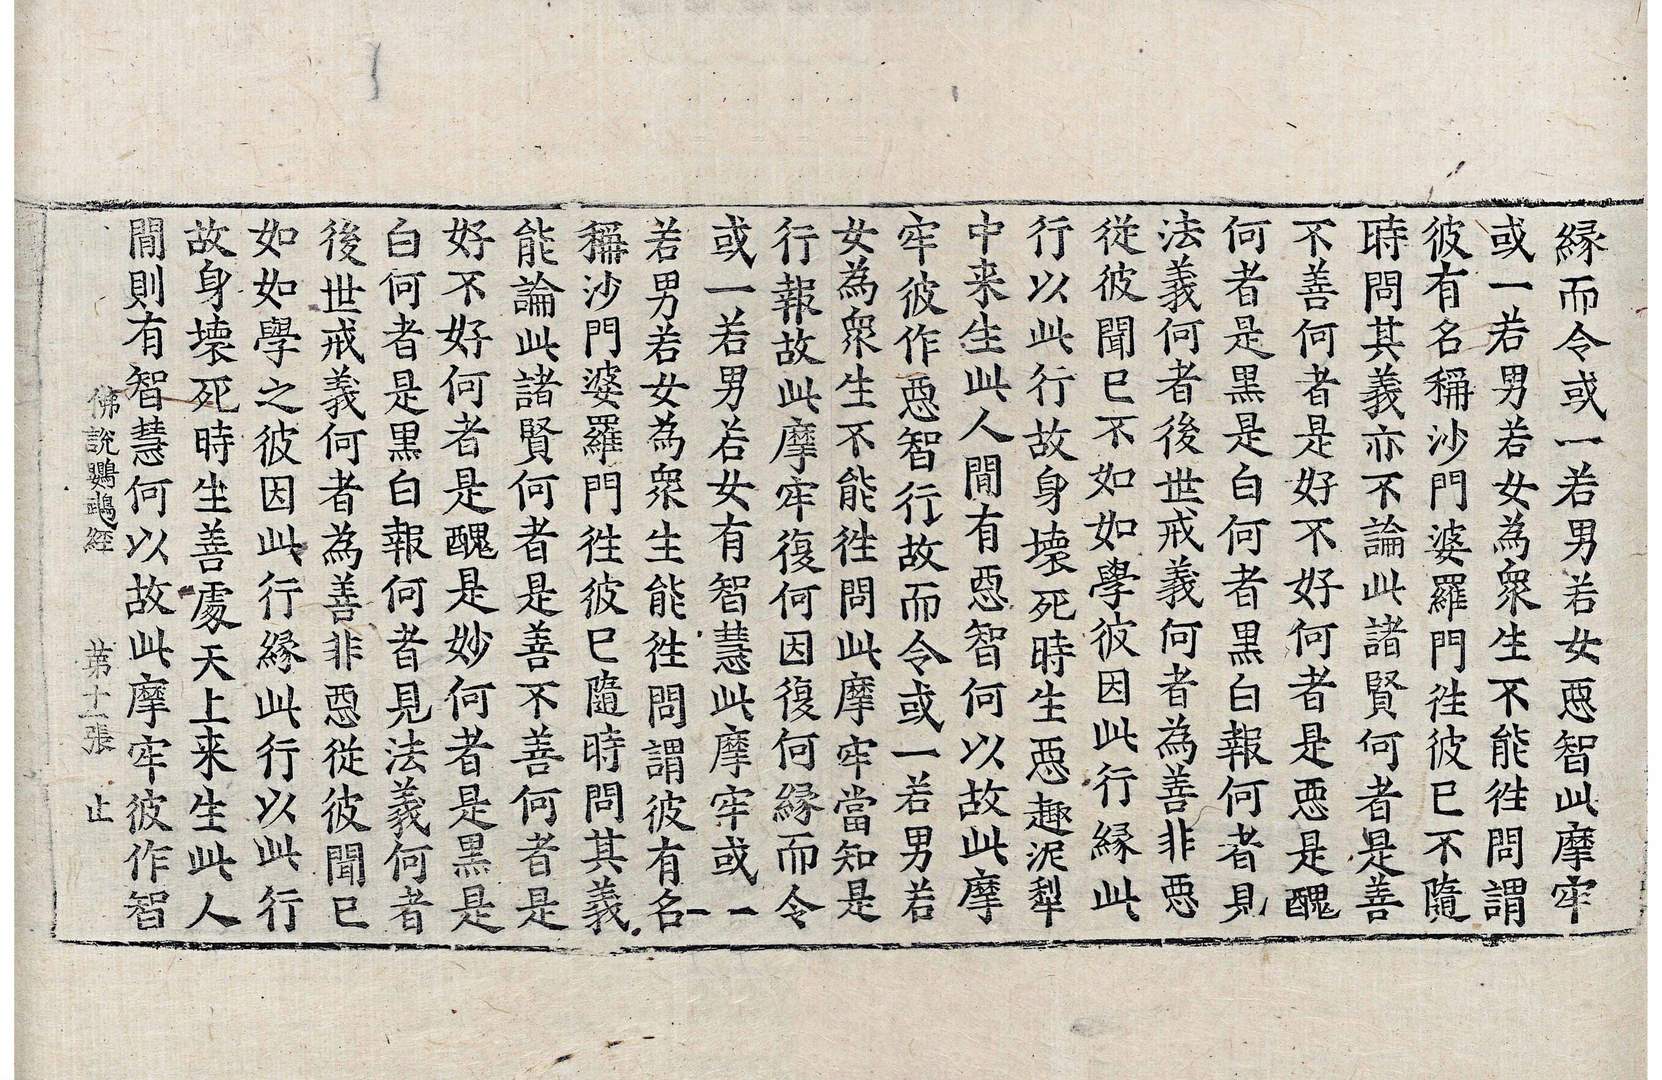 縁而令或一若男若女惡智此摩牢
或一若男若女為衆生不能徃問謂
彼有名稱沙門婆羅門徃彼已不隨
時問其義亦不論此諸賢何者是善
不善何者是好不好何者是惡是醜
何者是黒是白何者黒白報何者見
法義何者後世戒義何者為善非惡
從彼聞已不如如學彼因此行縁此
行以此行故身壊死時生惡趣泥犁
中来生此人間有惡智何以故此摩
牢彼作惡智行故而令或一若男若
女為衆生不能徃問此摩牢當知是
行報故此摩牢復何因復何縁而令
或一若男若女有智慧此摩牢或一
若男若女為衆生能徃問謂彼有名一
稱沙門婆羅門徃彼已隨時問其義
能論此諸賢何者是善不善何者是
好不好何者是醜是妙何者是黒是
白何者是黒白報何者見法義何者
後世戒義何者為善非惡從彼聞已
如如學之彼因此行縁此行以此行
故身壊死時生善處天上来生此人
間則有智慧何以故此摩牢彼作智
佛說鸚鵡經 第十一張 止